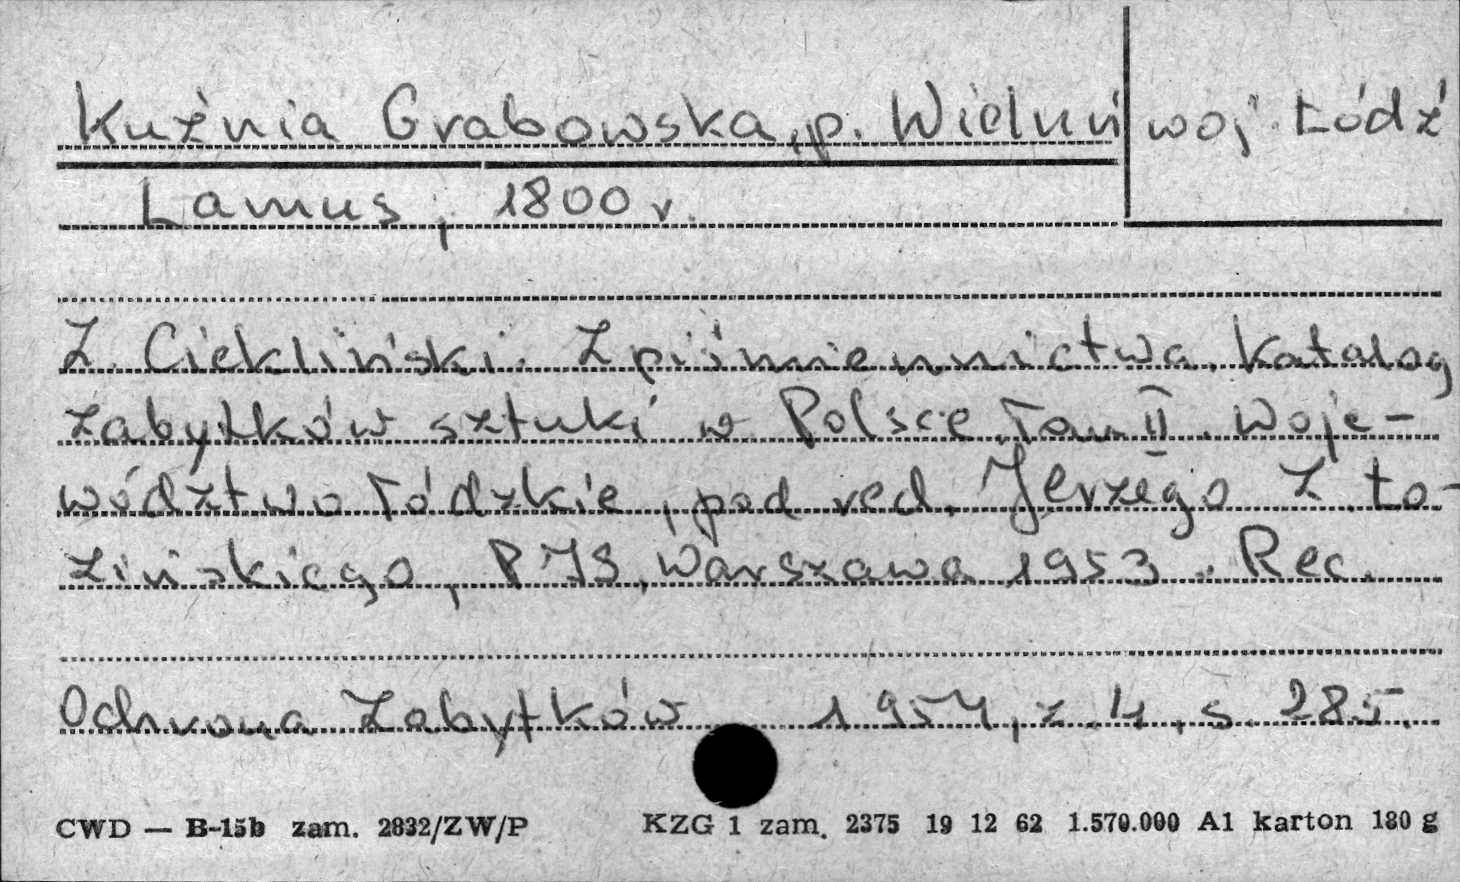 Kuźnia Grabowska, p. Wieluń
woj. Łódź
Lamus, 1800 r.
Z. Ciekliński. Z piśmiennictwa. Katalog
zabytków sztuki w Polsce. Tom II. Woje-
wództwo łódzkie, pod red. Jerzego Z. Ło-
zińskiego, PIS, Warszawa 1953. Rec.
Ochrona Zabytków 1954, z. 4, s. 285.
CWD — B-15b zam. 2832/ZW/P
KZG 1 zam. 2375 19 12 62 1.570.000 A1 karton 180 g